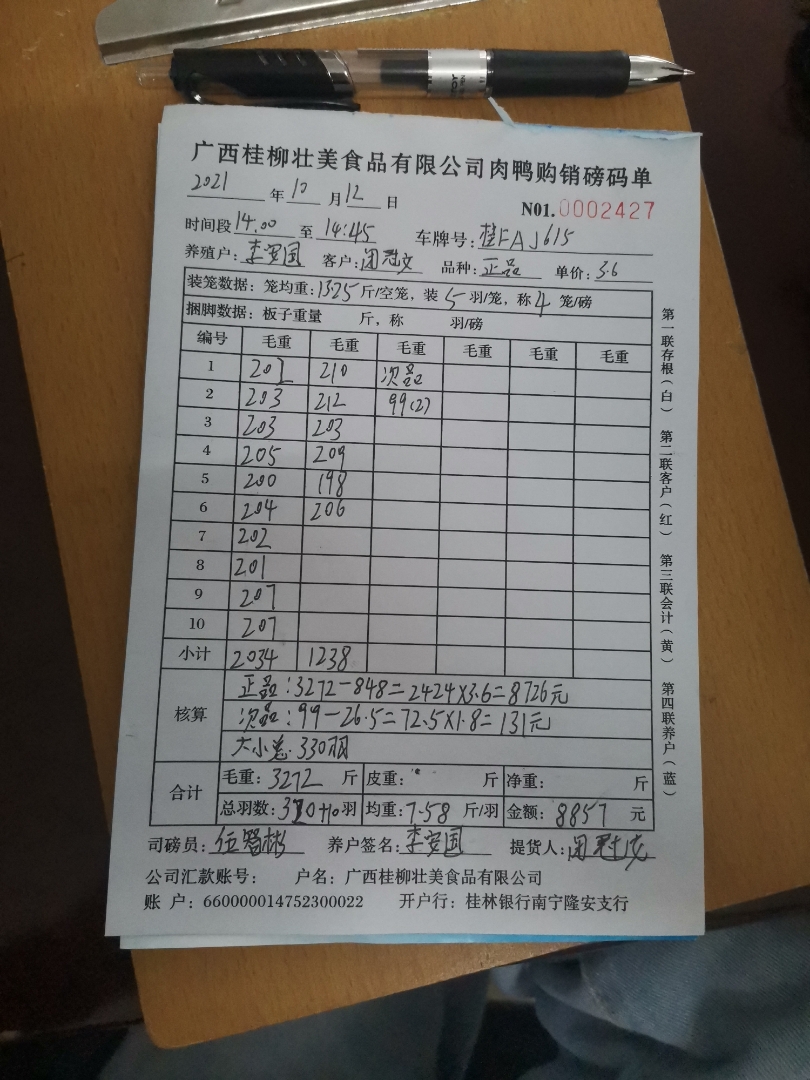 广西桂柳壮美食品有限公司肉鸭购销磅码单
2021 年 10 月 12 日
N01.0002427
时间段 14.00 至 14:45 车牌号: 桂FAJ615
养殖户: 李安国 客户: 闭冠文 品种: 正品 单价: 3.6
装笼数据: 笼均重: 13.25 斤/空笼, 装 5 羽/笼, 称 4 笼/磅
捆脚数据: 板子重量 斤, 称 羽/磅
编号 毛重 毛重 毛重 毛重 毛重 毛重
1 202 210 次品
2 203 212 99(2)
3 203 203
4 205 209
5 200 198
6 204 206
7 202
8 201
9 207
10 207
小计 2034 1238
核算
正品: 3272-848=2424×3.6=8726元
次品: 99-26.5=72.5×1.8=131元
大小总: 330羽
合计
毛重: 3272 斤 皮重: 斤 净重: 斤
总羽数: 320+10 羽 均重: 7.58 斤/羽 金额: 8857 元
司磅员: 伍 彬 养户签名: 李安国 提货人: 闭冠
公司汇款账号: 户名: 广西桂柳壮美食品有限公司
账 户: 660000014752300022 开户行: 桂林银行南宁隆安支行
第一联存根(白) 第二联客户(红) 第三联会计(黄) 第四联养户(蓝)